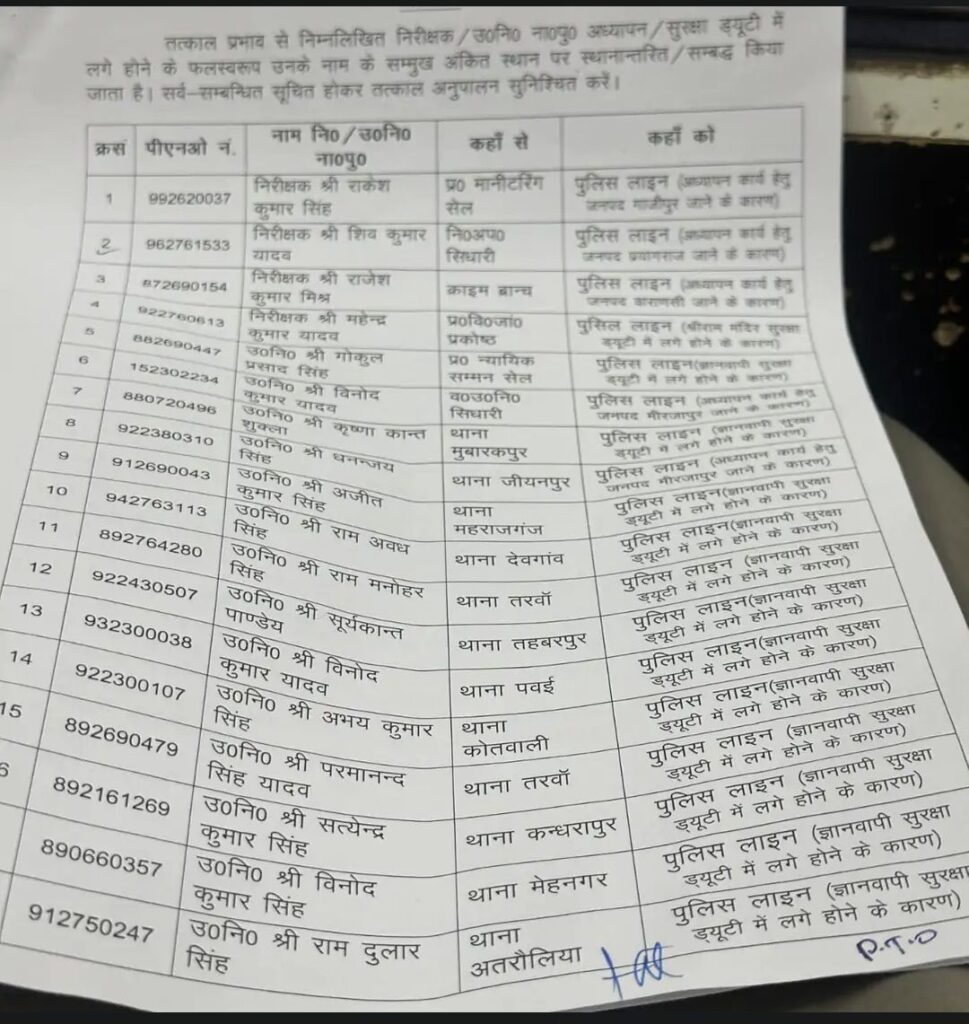 तत्काल प्रभाव से निम्नलिखित निरीक्षक/उ0नि0 ना0पु0 अध्यापन/सुरक्षा ड्यूटी में
लगे होने के फलस्वरूप उनके नाम के सम्मुख अंकित स्थान पर स्थानान्तरित/सम्बद्ध किया
जाता है। सर्व-सम्बन्धित सूचित होकर तत्काल अनुपालन सुनिश्चित करें।
क्रसं पीएनओ नं. नाम नि0/उ0नि0 ना0पु0 कहाँ से कहाँ को
1 992620037 निरीक्षक श्री राकेश कुमार सिंह प्र0 मानीटरिंग सेल पुलिस लाइन (अध्यापन कार्य हेतु जनपद गाजीपुर जाने के कारण)
2 962761533 निरीक्षक श्री शिव कुमार यादव नि0अप0 सिधारी पुलिस लाइन (अध्यापन कार्य हेतु जनपद प्रयागराज जाने के कारण)
3 872690154 निरीक्षक श्री राजेश कुमार मिश्र क्राइम ब्रान्च पुलिस लाइन (अध्यापन कार्य हेतु जनपद वाराणसी जाने के कारण)
4 922760613 निरीक्षक श्री महेन्द्र कुमार यादव प्र0वि0जां0 प्रकोष्ठ पुसिल लाइन (श्रीराम मंदिर सुरक्षा ड्यूटी में लगे होने के कारण)
5 882690447 उ0नि0 श्री गोकुल प्रसाद सिंह प्र0 न्यायिक सम्मन सेल पुलिस लाइन(ज्ञानवापी सुरक्षा ड्यूटी में लगे होने के कारण)
6 152302234 उ0नि0 श्री विनोद कुमार यादव व0उ0नि0 सिधारी पुलिस लाइन (अध्यापन कार्य हेतु जनपद मीरजापुर जाने के कारण)
7 880720496 उ0नि0 श्री कृष्णा कान्त शुक्ला थाना मुबारकपुर पुलिस लाइन (ज्ञानवापी सुरक्षा ड्यूटी में लगे होने के कारण)
8 922380310 उ0नि0 श्री धनन्जय सिंह थाना जीयनपुर पुलिस लाइन (अध्यापन कार्य हेतु जनपद मीरजापुर जाने के कारण)
9 912690043 उ0नि0 श्री अजीत कुमार सिंह थाना महराजगंज पुलिस लाइन(ज्ञानवापी सुरक्षा ड्यूटी में लगे होने के कारण)
10 942763113 उ0नि0 श्री राम अवध सिंह थाना देवगांव पुलिस लाइन(ज्ञानवापी सुरक्षा ड्यूटी में लगे होने के कारण)
11 892764280 उ0नि0 श्री राम मनोहर सिंह थाना तरवॉ पुलिस लाइन (ज्ञानवापी सुरक्षा ड्यूटी में लगे होने के कारण)
12 922430507 उ0नि0 श्री सूर्यकान्त पाण्डेय थाना तहबरपुर पुलिस लाइन(ज्ञानवापी सुरक्षा ड्यूटी में लगे होने के कारण)
13 932300038 उ0नि0 श्री विनोद कुमार यादव थाना पवई पुलिस लाइन(ज्ञानवापी सुरक्षा ड्यूटी में लगे होने के कारण)
14 922300107 उ0नि0 श्री अभय कुमार सिंह थाना कोतवाली पुलिस लाइन(ज्ञानवापी सुरक्षा ड्यूटी में लगे होने के कारण)
15 892690479 उ0नि0 श्री परमानन्द सिंह यादव थाना तरवॉ पुलिस लाइन (ज्ञानवापी सुरक्षा ड्यूटी में लगे होने के कारण)
6 892161269 उ0नि0 श्री सत्येन्द्र कुमार सिंह थाना कन्धरापुर पुलिस लाइन (ज्ञानवापी सुरक्षा ड्यूटी में लगे होने के कारण)
890660357 उ0नि0 श्री विनोद कुमार सिंह थाना मेहनगर पुलिस लाइन (ज्ञानवापी सुरक्षा ड्यूटी में लगे होने के कारण)
912750247 उ0नि0 श्री राम दुलार सिंह थाना अतरौलिया पुलिस लाइन (ज्ञानवापी सुरक्षा ड्यूटी में लगे होने के कारण)
P.T.O